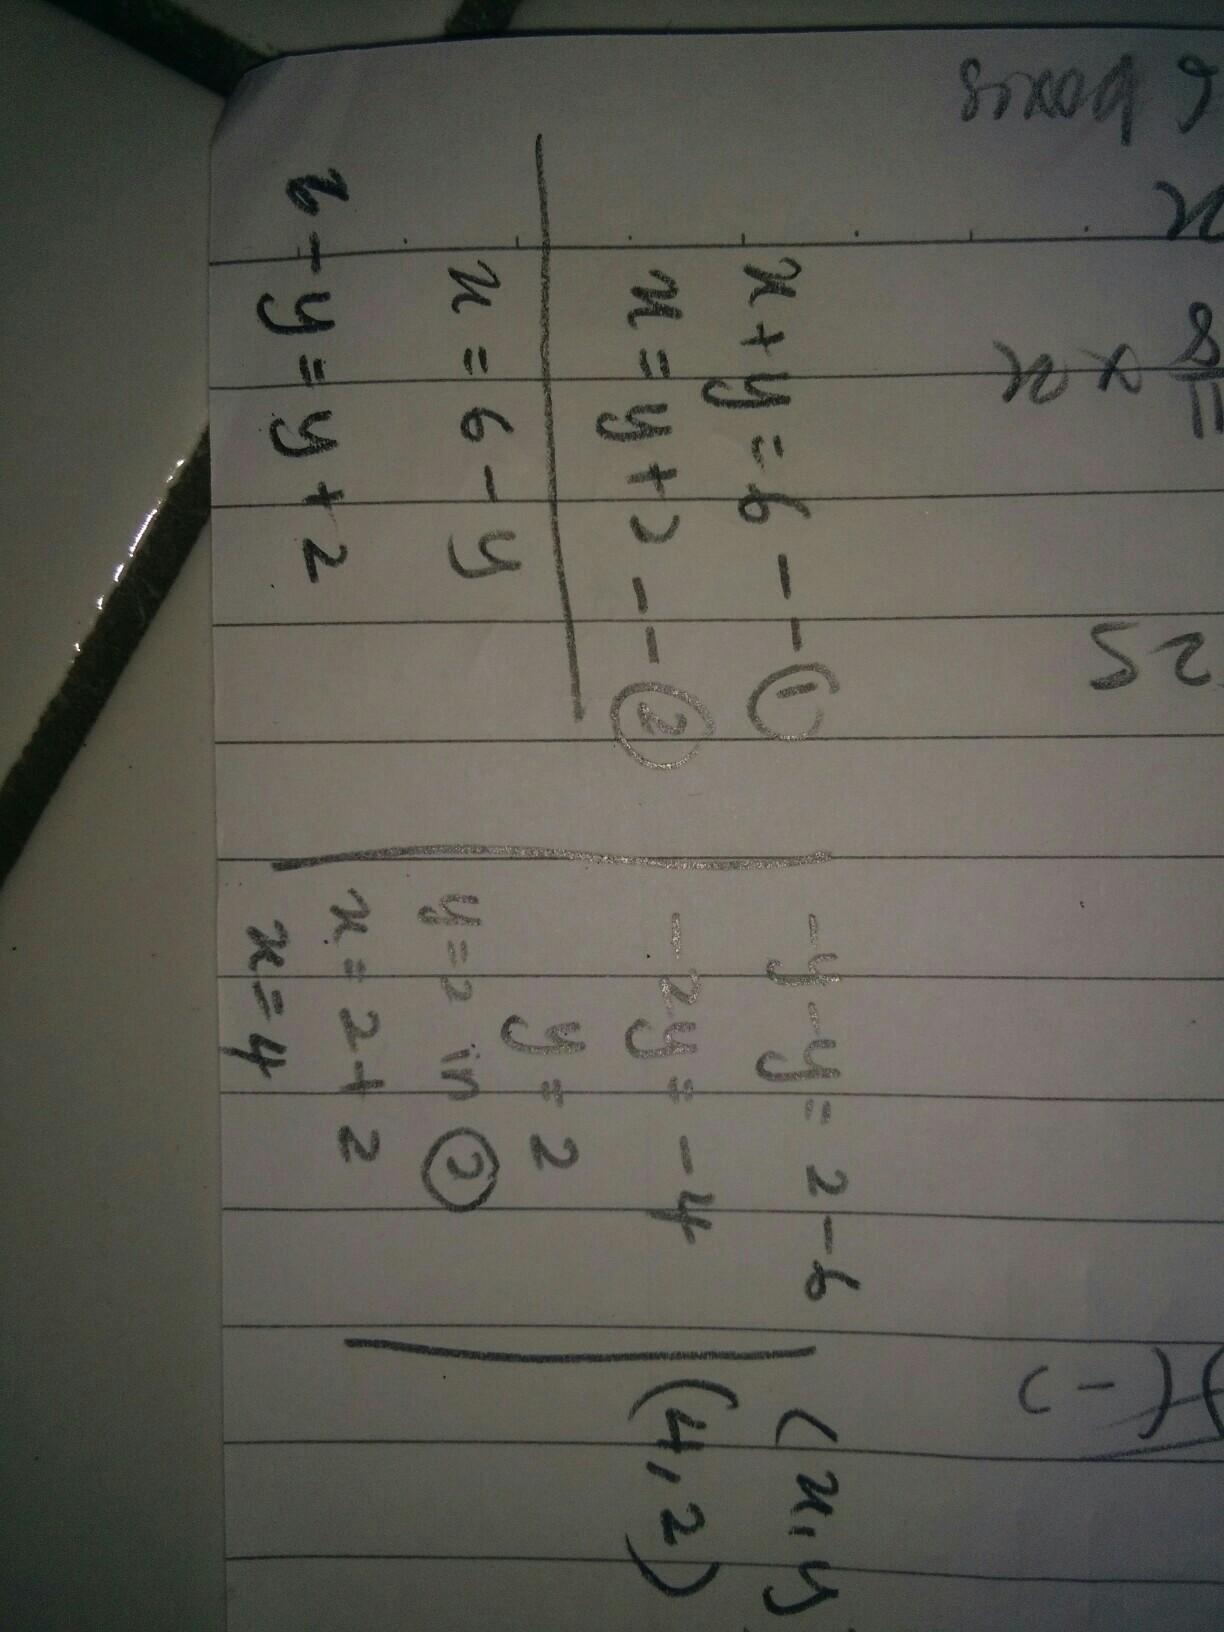 x + y = 6 - - ①
x = y + 2 - - ②
x = 6 - y
6 - y = y + 2
- y - y = 2 - 6
- 2y = - 4
y = 2
y = 2 in ②
x = 2 + 2
x = 4
(x, y
(4, 2)
boxis
x
8/11 x x
25